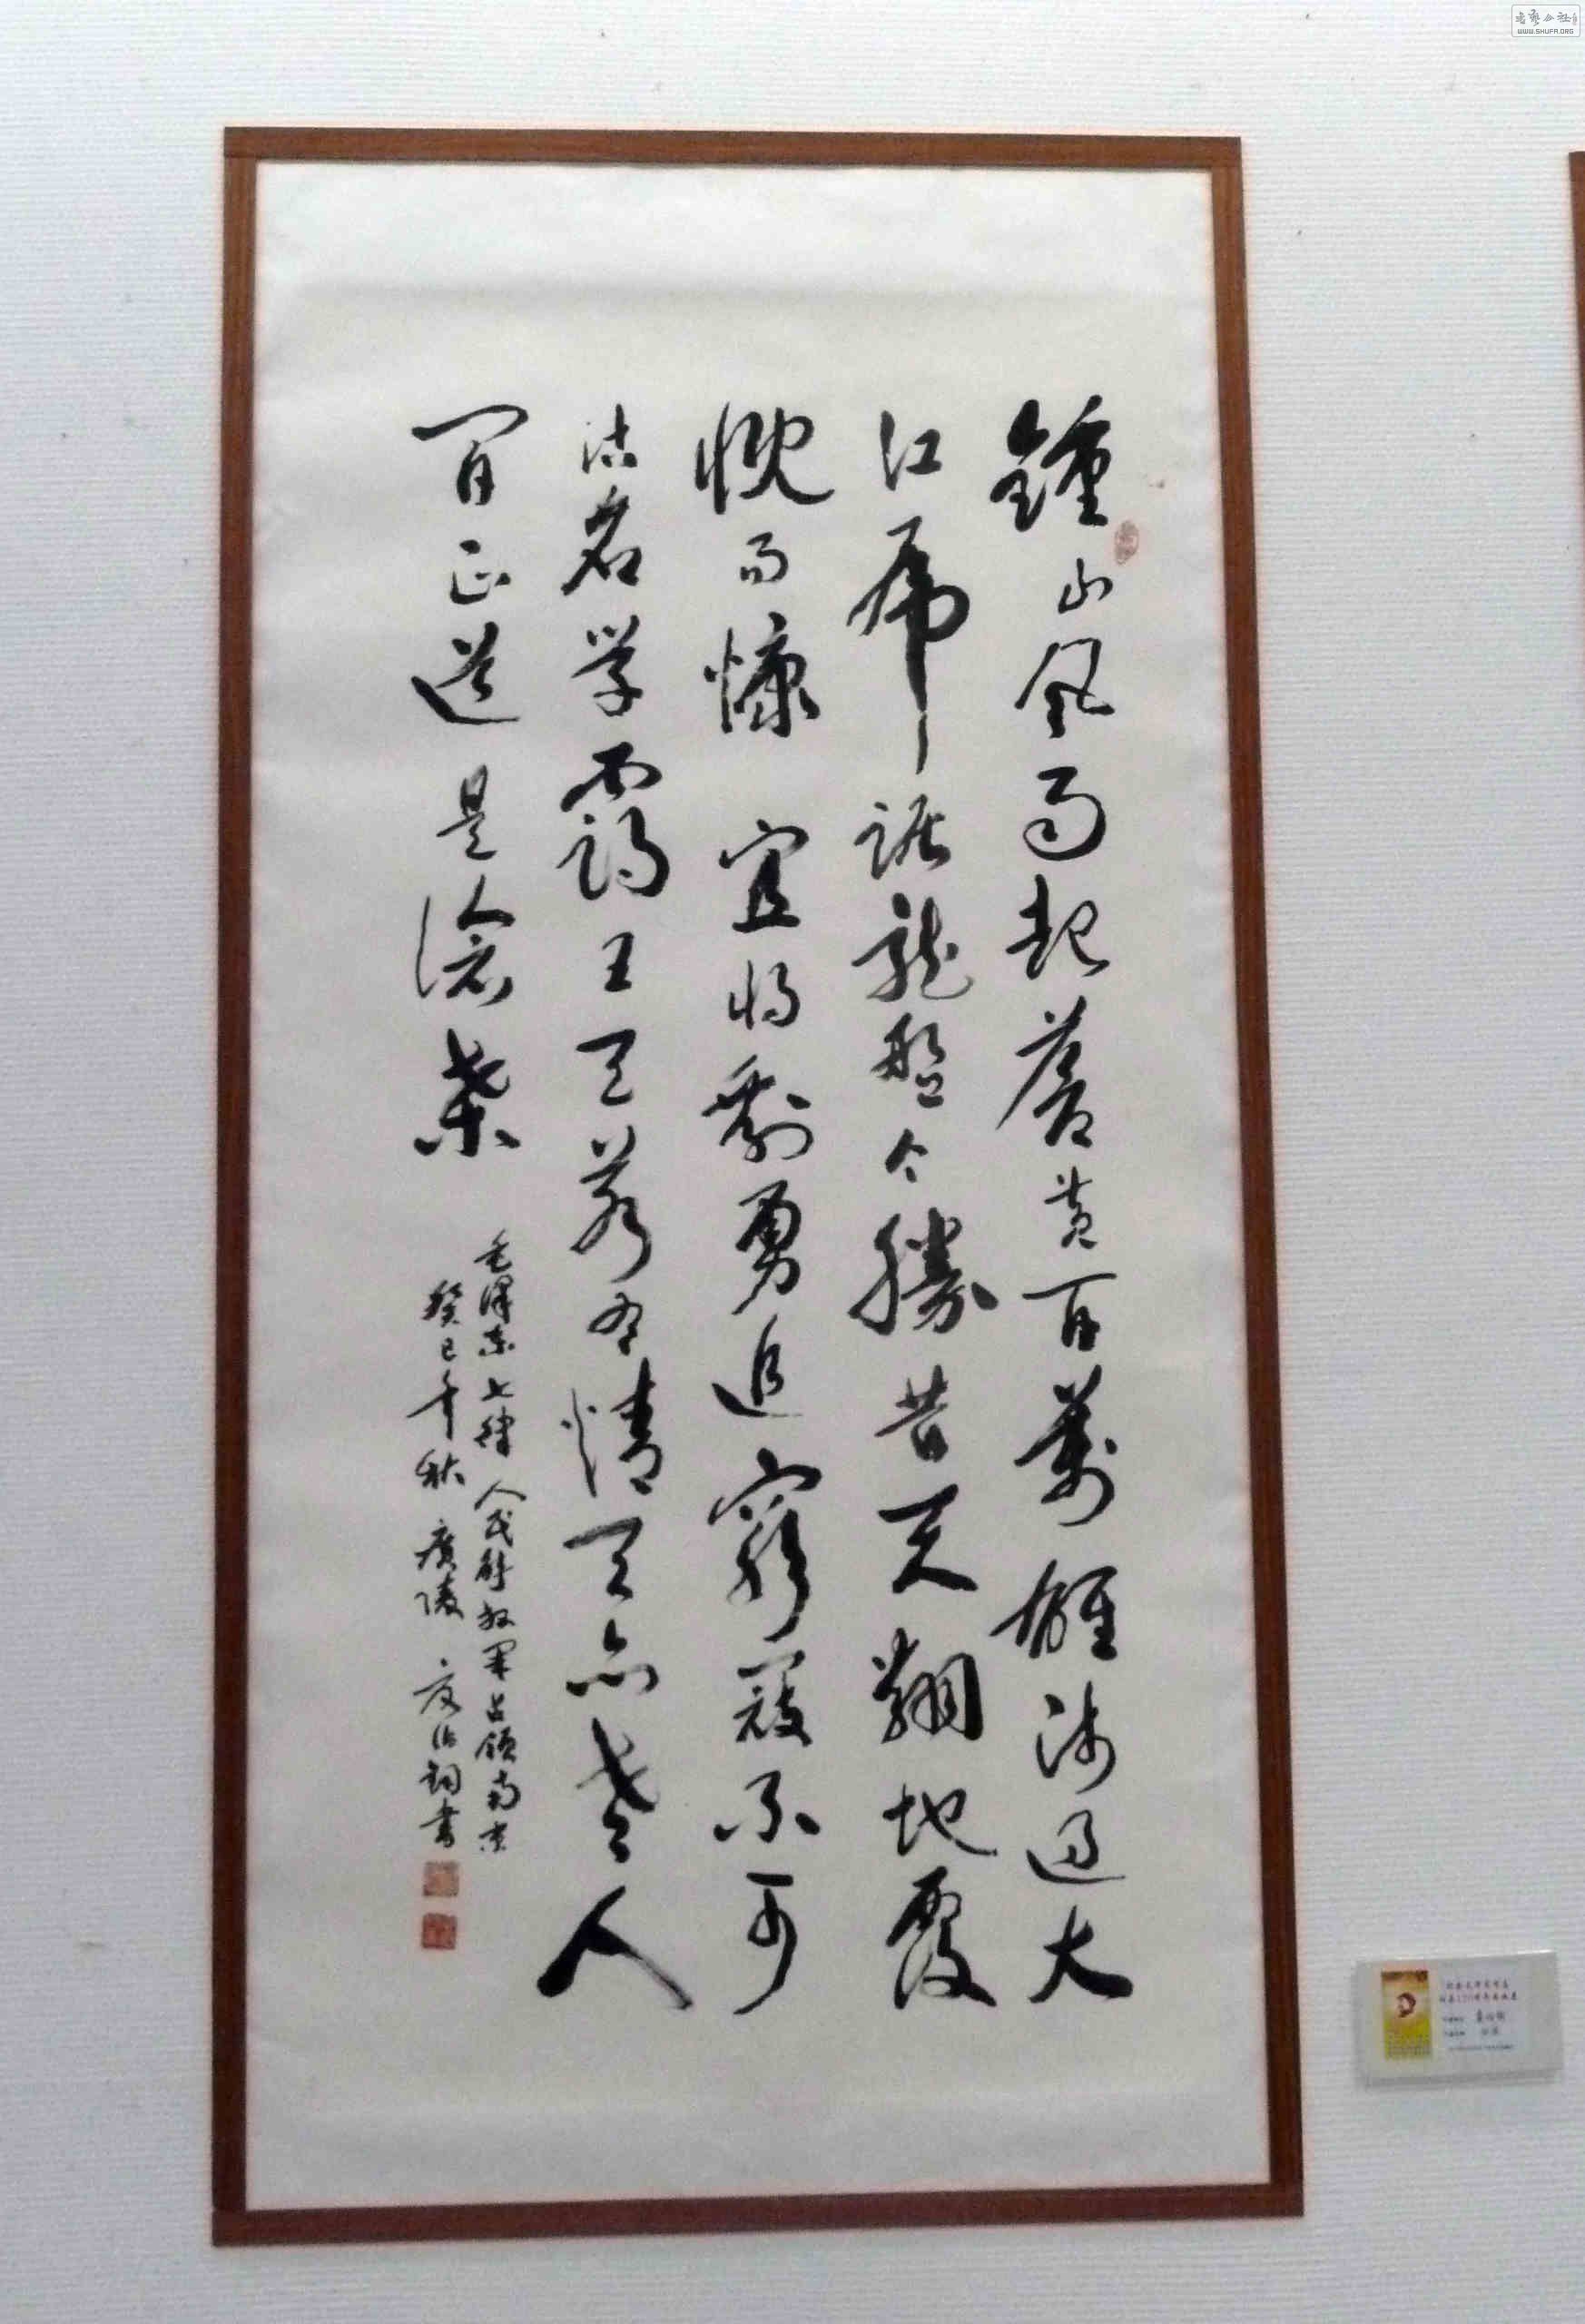 鍾山風雨起蒼黄百萬雄師過大
江虎踞龍盤今勝昔天翻地覆
慨而慷宜將剩勇追窮寇不可
沽名學霸王天若有情天亦老人
间正道是滄桑
毛澤东七律人民解放军占领南京
癸巳年秋廣陵夏伯詞書
WWW.SHUFA.ORG